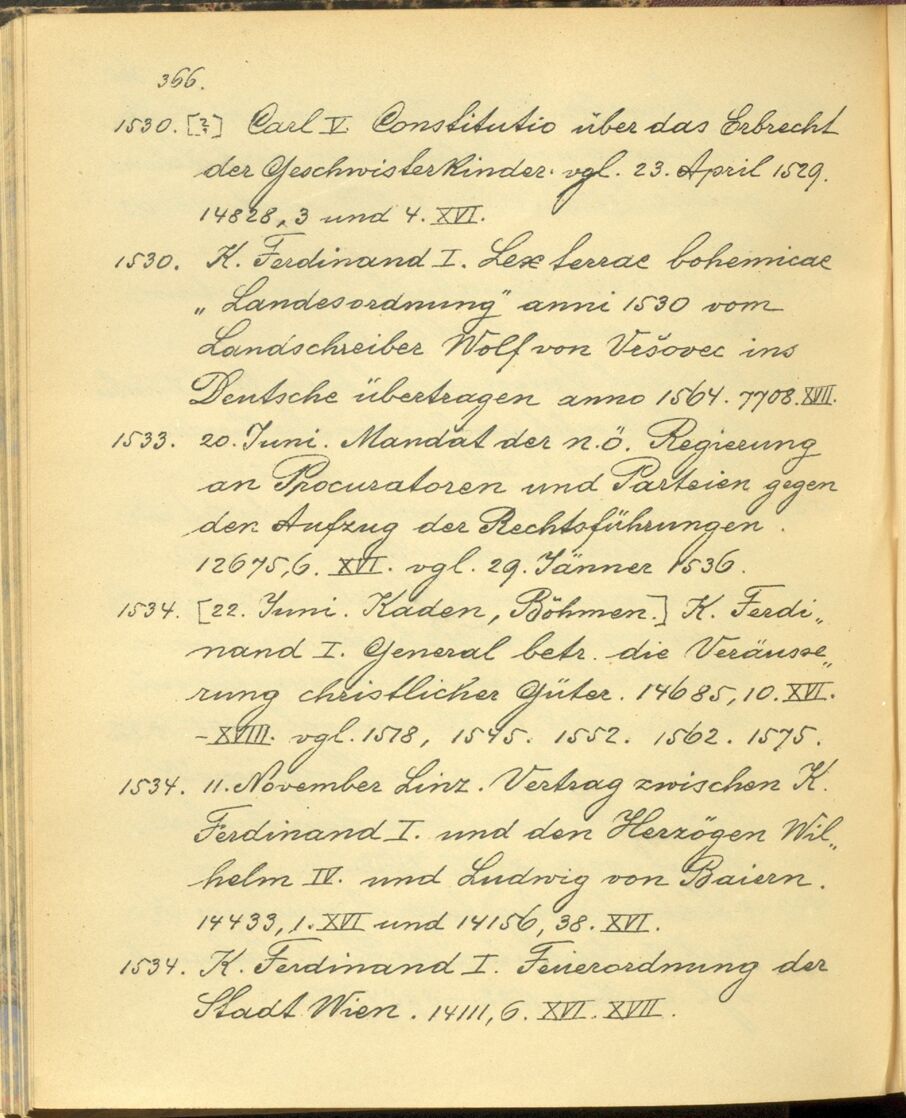 366.
1530. [?] Carl V. Constitutio über das Erbrecht
der Geschwisterkinder. vgl. 23. April 1529.
14828, 3 und 4. XVI.
1530. K. Ferdinand I. Lex terrae bohemicae
„Landesordnung" anni 1530 vom
Landschreiber Wolf von Vršovec ins
Deutsche übertragen anno 1564. 7708. XVII.
1533. 20. Juni. Mandat der n.ö. Regierung
an Procuratoren und Parteien gegen
den Aufzug der Rechtsführungen.
12675,6. XVI. vgl. 29. Jänner 1536.
1534. [22. Juni. Kaden, Böhmen.] K. Ferdi„
nand I. General betr. die Veräusse„
rung christlicher Güter. 14685, 10. XVI.
-XVIII. vgl. 1518, 1545. 1552. 1562. 1575.
1534. 11. November Linz. Vertrag zwischen K.
Ferdinand I. und den Herzögen Wil„
helm IV. und Ludwig von Baiern.
14433, 1. XVI und 14156, 38. XVI.
1534. K. Ferdinand I. Feuerordnung der
Stadt Wien. 14111, 6. XVI. XVII.